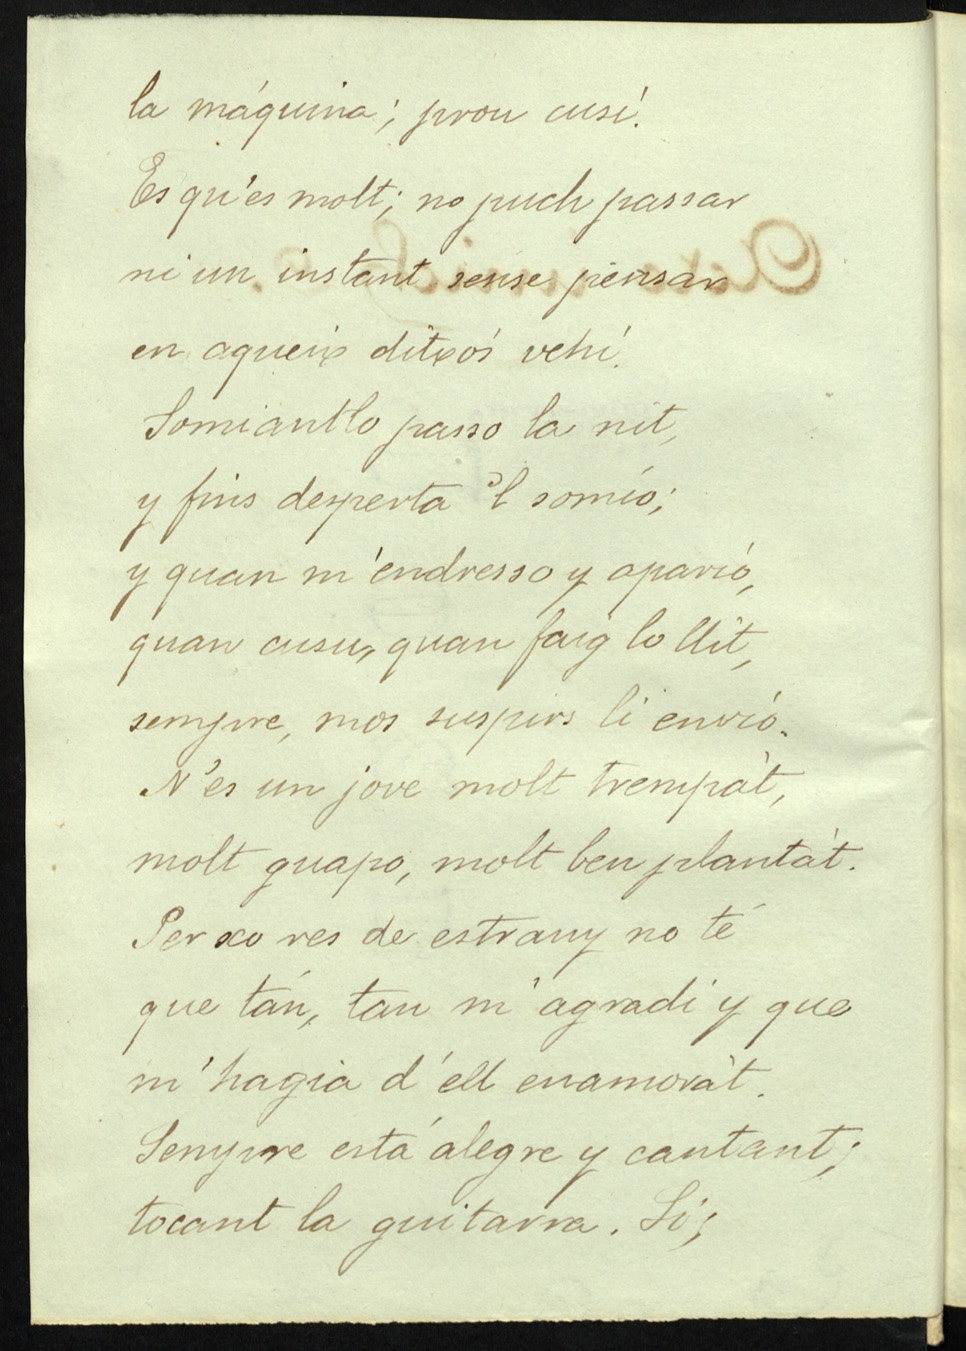 la máquina; prou cusí.
Es qu'es molt; no puch passar
ni un instant sense pensar
en aqueix ditxós vehí.
Somiantlo passo la nit,
y fins desperta 'l somío;
y quan m'endresso y aparío,
quan cusu, quan faig lo llit,
sempre, mos suspirs li envío.
N'es un jove molt trempát,
molt guapo, molt ben plantát.
Per xo res de estrany no té
que tán, tan m'agradi y que
m'hagia d'ell enamorát.
Sempre está alegre y cantant;
tocant la guitarra. Sí;